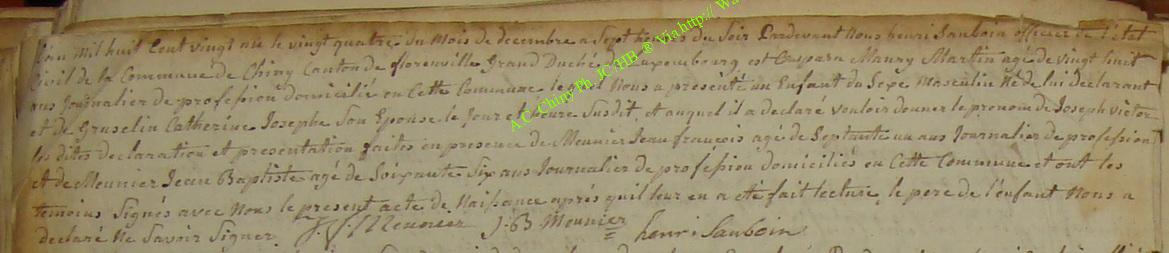 L'an mil huit Cent vingt un le vingt quatre du mois de decembre a Sept heures du Soir Pardevant Nous henri Sauboin officier de l'état
Civil de la Commune de Chiny Canton de florenville Grand Duché Luxembourg est Comparu Maury Martin agé de vingt huit
ans Journalier de profession domicilié en Cette Commune le Nous a présenté un Enfant du Sexe Masculin Né de lui declarant
et de Gruselin Catherine Josephe Son Epouse le Jour et heure Susdit, et auquel il a declaré vouloir donner le prenom de Joseph victor
les dites declaration et presentation faites en presence de Meunier Jean françois agé de Septante un ans Journalier de profession
et de Meunier Jean Baptiste agé de Soixante Six ans Journalier de profession domiciliés en Cette Commune et ont les
temoins Signés avec Nous le present acte de Naissance après quil leur en a eté fait lecture, le pere de l'enfant Nous a
declaré Ne Savoir Signer. J. f. Meunier J. B Meunier henri Sauboin
A.C. Chiny Ph. JC.HB ® Via http:// Wa